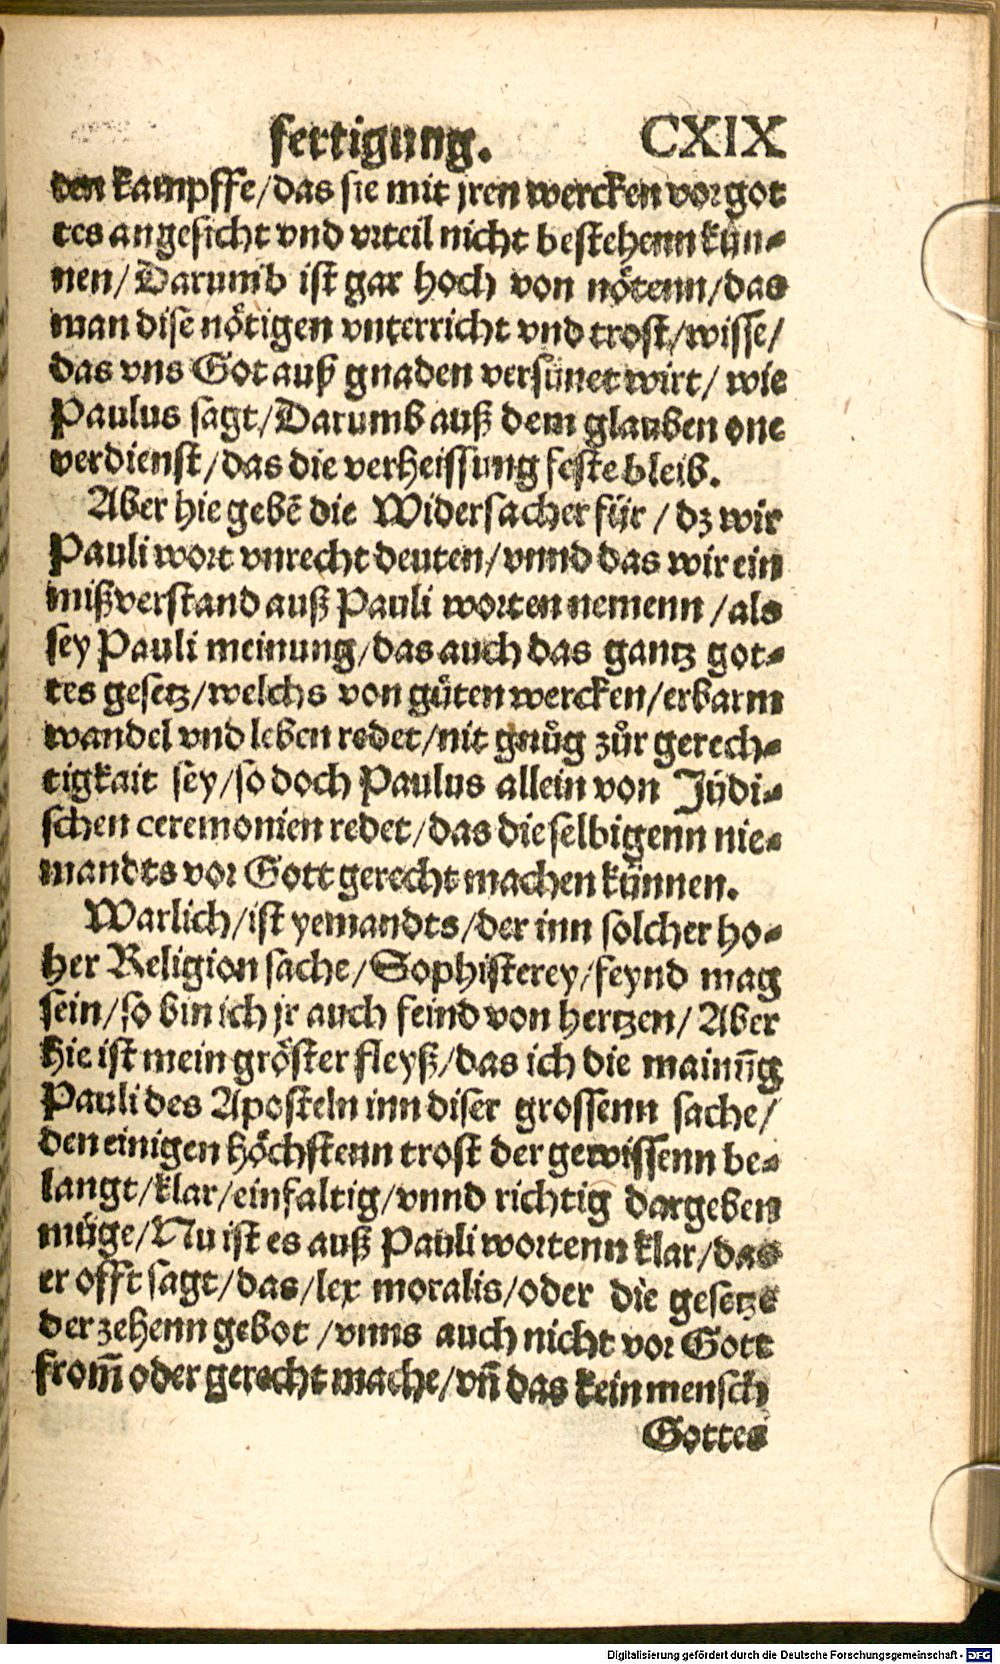 fertigung. CXIX
den kampffe/das sie mit jren wercken vor got
tes angesicht vnd vrteil nicht bestehenn kün-
nen/Darumb ist gar hoch von nötenn/das
man dise nötigen vnterricht vnd trost/wisse/
das vns Got auß gnaden versünet wirt/ wie
Paulus sagt/Darumb auß dem glauben one
verdienst/das die verheissung feste bleib.
Aber hie gebẽ die Widersacher für / dz wir
Pauli wort vnrecht deuten/vnnd das wir ein
mißverstand auß Pauli worten nemenn /als
sey Pauli meinung/das auch das gantz got-
tes gesetz/welchs von gůten wercken/erbarm
wandel vnd leben redet/nit gnůg zůr gerech-
tigkait sey/so doch Paulus allein von Jüdi-
schen ceremonien redet/das dieselbigenn nie-
mandts vor Gott gerecht machen künnen.
Warlich/ist yemandts/der inn solcher ho-
her Religion sache/Sophisterey/feynd mag
sein/so bin ich jr auch feind von hertzen/ Aber
hie ist mein gröster fleyß/das ich die mainũg
Pauli des Aposteln inn diser grossenn sache/
den einigen höchstenn trost der gewissenn be-
langt/klar/einfaltig/vnnd richtig dargeben
müge/Nu ist es auß Pauli wortenn klar/das
er offt sagt/das/lex moralis/oder die gesetze
der zehenn gebot /vnns auch nicht vor Gott
from̃ oder gerecht mache/vñ das kein mensch
Gottes
Digitalisierung gefördert durch die Deutsche Forschungsgemeinschaft - DFG